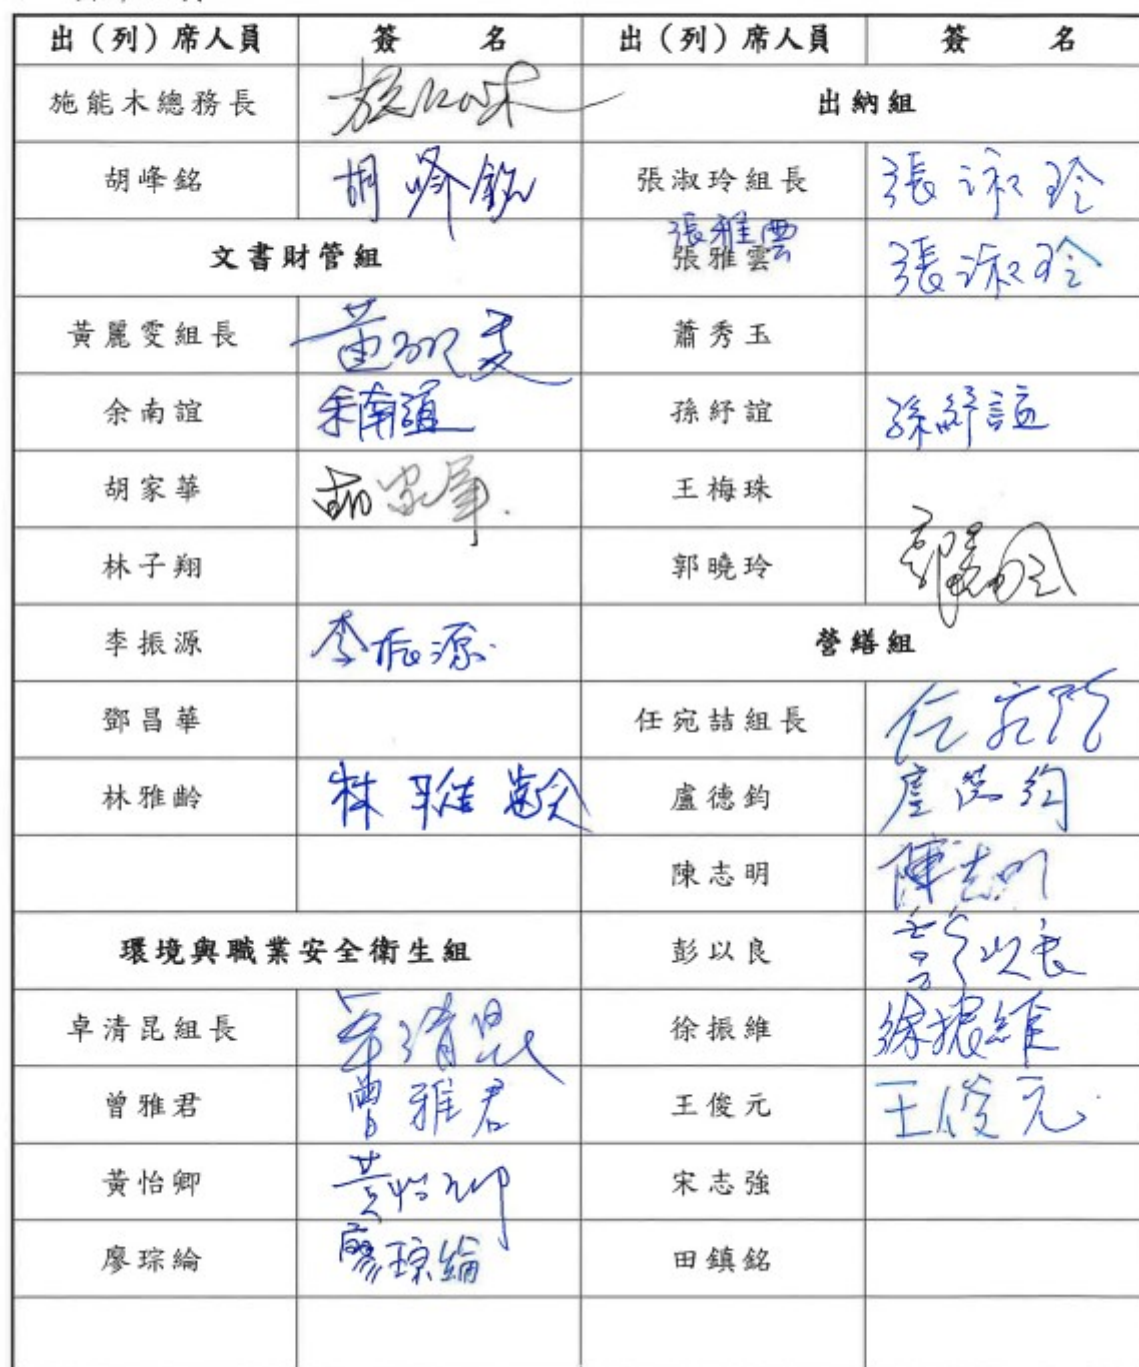 出（列）席人員 簽 名 出（列）席人員 簽 名
施能木總務長 施能木 出納組
胡峰銘 胡峰銘 張淑玲組長 張淑玲
張雅雲
文書財管組 張雅雲 張淑玲
黃麗雯組長 黃麗雯 蕭秀玉
余南誼 余南誼 孫紓誼 孫紓誼
胡家華 胡家華 王梅珠
林子翔 郭曉玲 郭曉玲
李振源 李振源 營繕組
鄧昌華 任宛喆組長 任宛喆
林雅齡 林雅齡 盧德鈞 盧德鈞
陳志明 陳志明
環境與職業安全衛生組 彭以良 彭以良
卓清昆組長 卓清昆 徐振維 徐振維
曾雅君 曾雅君 王俊元 王俊元
黃怡卿 黃怡卿 宋志強
廖琮綸 廖琮綸 田鎮銘